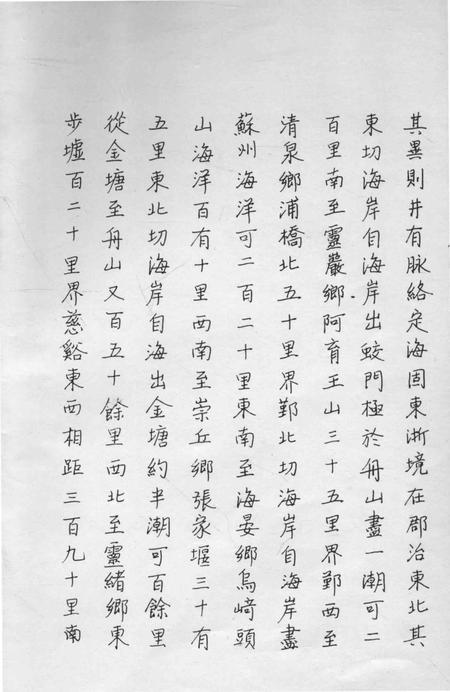 其異則井有脉絡定海固東浙境在郡治東北其
東切海岸自海岸出蛟門極於舟山盡一潮可二
百里南至靈巖鄉阿育王山三十五里界鄞西至
清泉鄉浦橋北五十里界鄞北切海岸自海岸盡
蘇州海洋可二百二十里東南至海晏鄉烏﨑頭
山海洋百有十里西南至崇丘鄉張家堰三十有
五里東北切海岸自海出金塘約半潮可百餘里
從金塘至舟山又百五十餘里西北至靈緒鄉東
步墟百二十里界慈谿東西相距三百九十里南